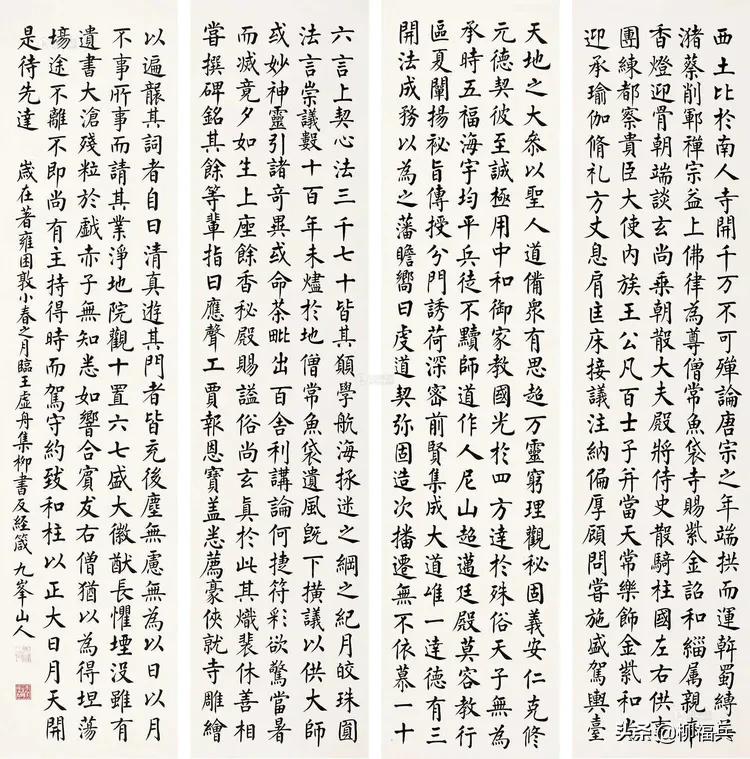 西土比於南人寺開千万不可殫論唐宗之年端拱而運斡蜀縛并
瀦蔡削鄆禪宗益上佛律為尊僧常魚袋寺賜紫金詔和緇属親席
香燈迎骨朝端談玄尚乗朝散大夫殿將侍史散騎柱國左右供事
團練都察貴臣大使內族王公凡百士子并當天常樂飾金紫和尚
迎承瑜伽脩礼方丈息肩匡床接議注納偏厚顧問嘗施盛駕輿臺
天地之大叅以聖人道備衆有思超万靈窮理觀秘固義安仁克修
元德契彼至誠極用中和御家教國光於四方達於殊俗天子無為
承時五福海宇均平兵徒不黷師道作人尼山超邁廷殿莫容教行
區夏闡揚祕旨傳授分門誘荷深密前賢集成大道唯一達德有三
開法成務以為之藩瞻嚮曰虔道契弥固造次播遷無不依慕一十
六言上契心法三千七十皆其顓學航海拯迷之綱之紀月皎珠圓
法言崇議數十百年未燼於地僧常魚袋遺風旣下橫議以供大師
或妙神靈引諸奇異或命荼毗出百舍利講論何捷符彩欲驚當暑
而滅竟夕如生上座餘香秘殿賜謚俗尚玄真於此其熾裴休善相
嘗撰碑銘其餘等輩指曰應聲工賈報恩寶盖悉薦豪俠就寺雕繪
以遍襲其詞者自曰清真遊其門者皆充後塵無慮無為以日以月
不事所事而請其業淨地院觀十置六七盛大徽猷長懼堙没雖有
遺書大滄殘粒於戱赤子無知悉如響合賓友右僧猶以為得坦蕩
壕途不離不即尚有主持得時而駕守約致和柱以正大日月天開
是待先達 歲在著雍困敦小春之月臨王虛舟集柳書反經箴 九峯山人
头条@柳福兵